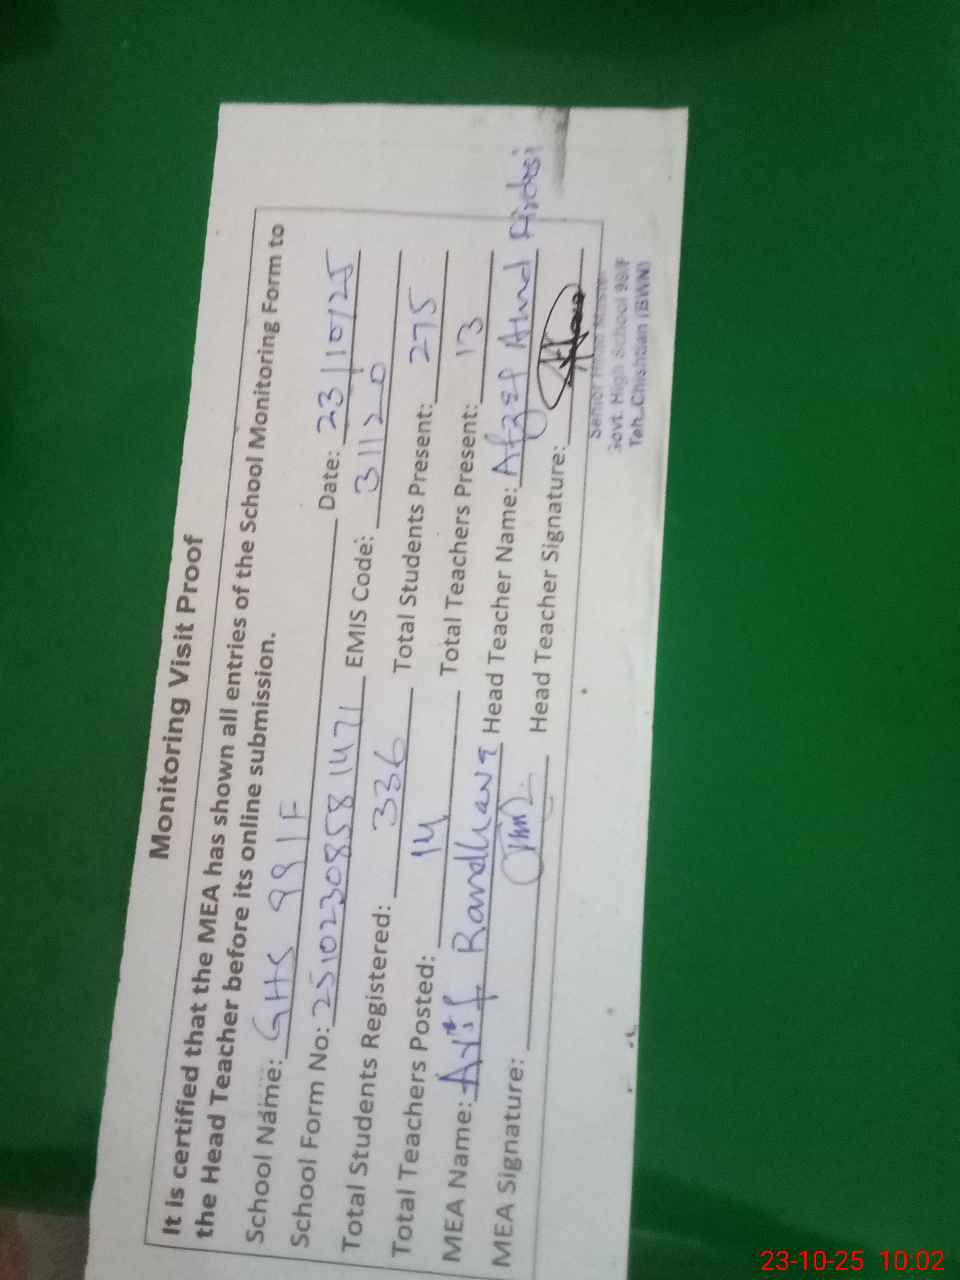 Monitoring Visit Proof
It is certified that the MEA has shown all entries of the School Monitoring Form to
the Head Teacher before its online submission.
School Name: GHS 99/F Date: 23/10/25
School Form No: 25102308581471 EMIS Code: 31120
Total Students Registered: 336 Total Students Present: 275
Total Teachers Posted: 14 Total Teachers Present: 13
MEA Name: Arif Randhawa Head Teacher Name: Afzal Ahmd
MEA Signature: Head Teacher Signature:
Senior Head Master
Govt. High School 99/F
Teh. Chishtian (BWN)
23-10-25 10:02